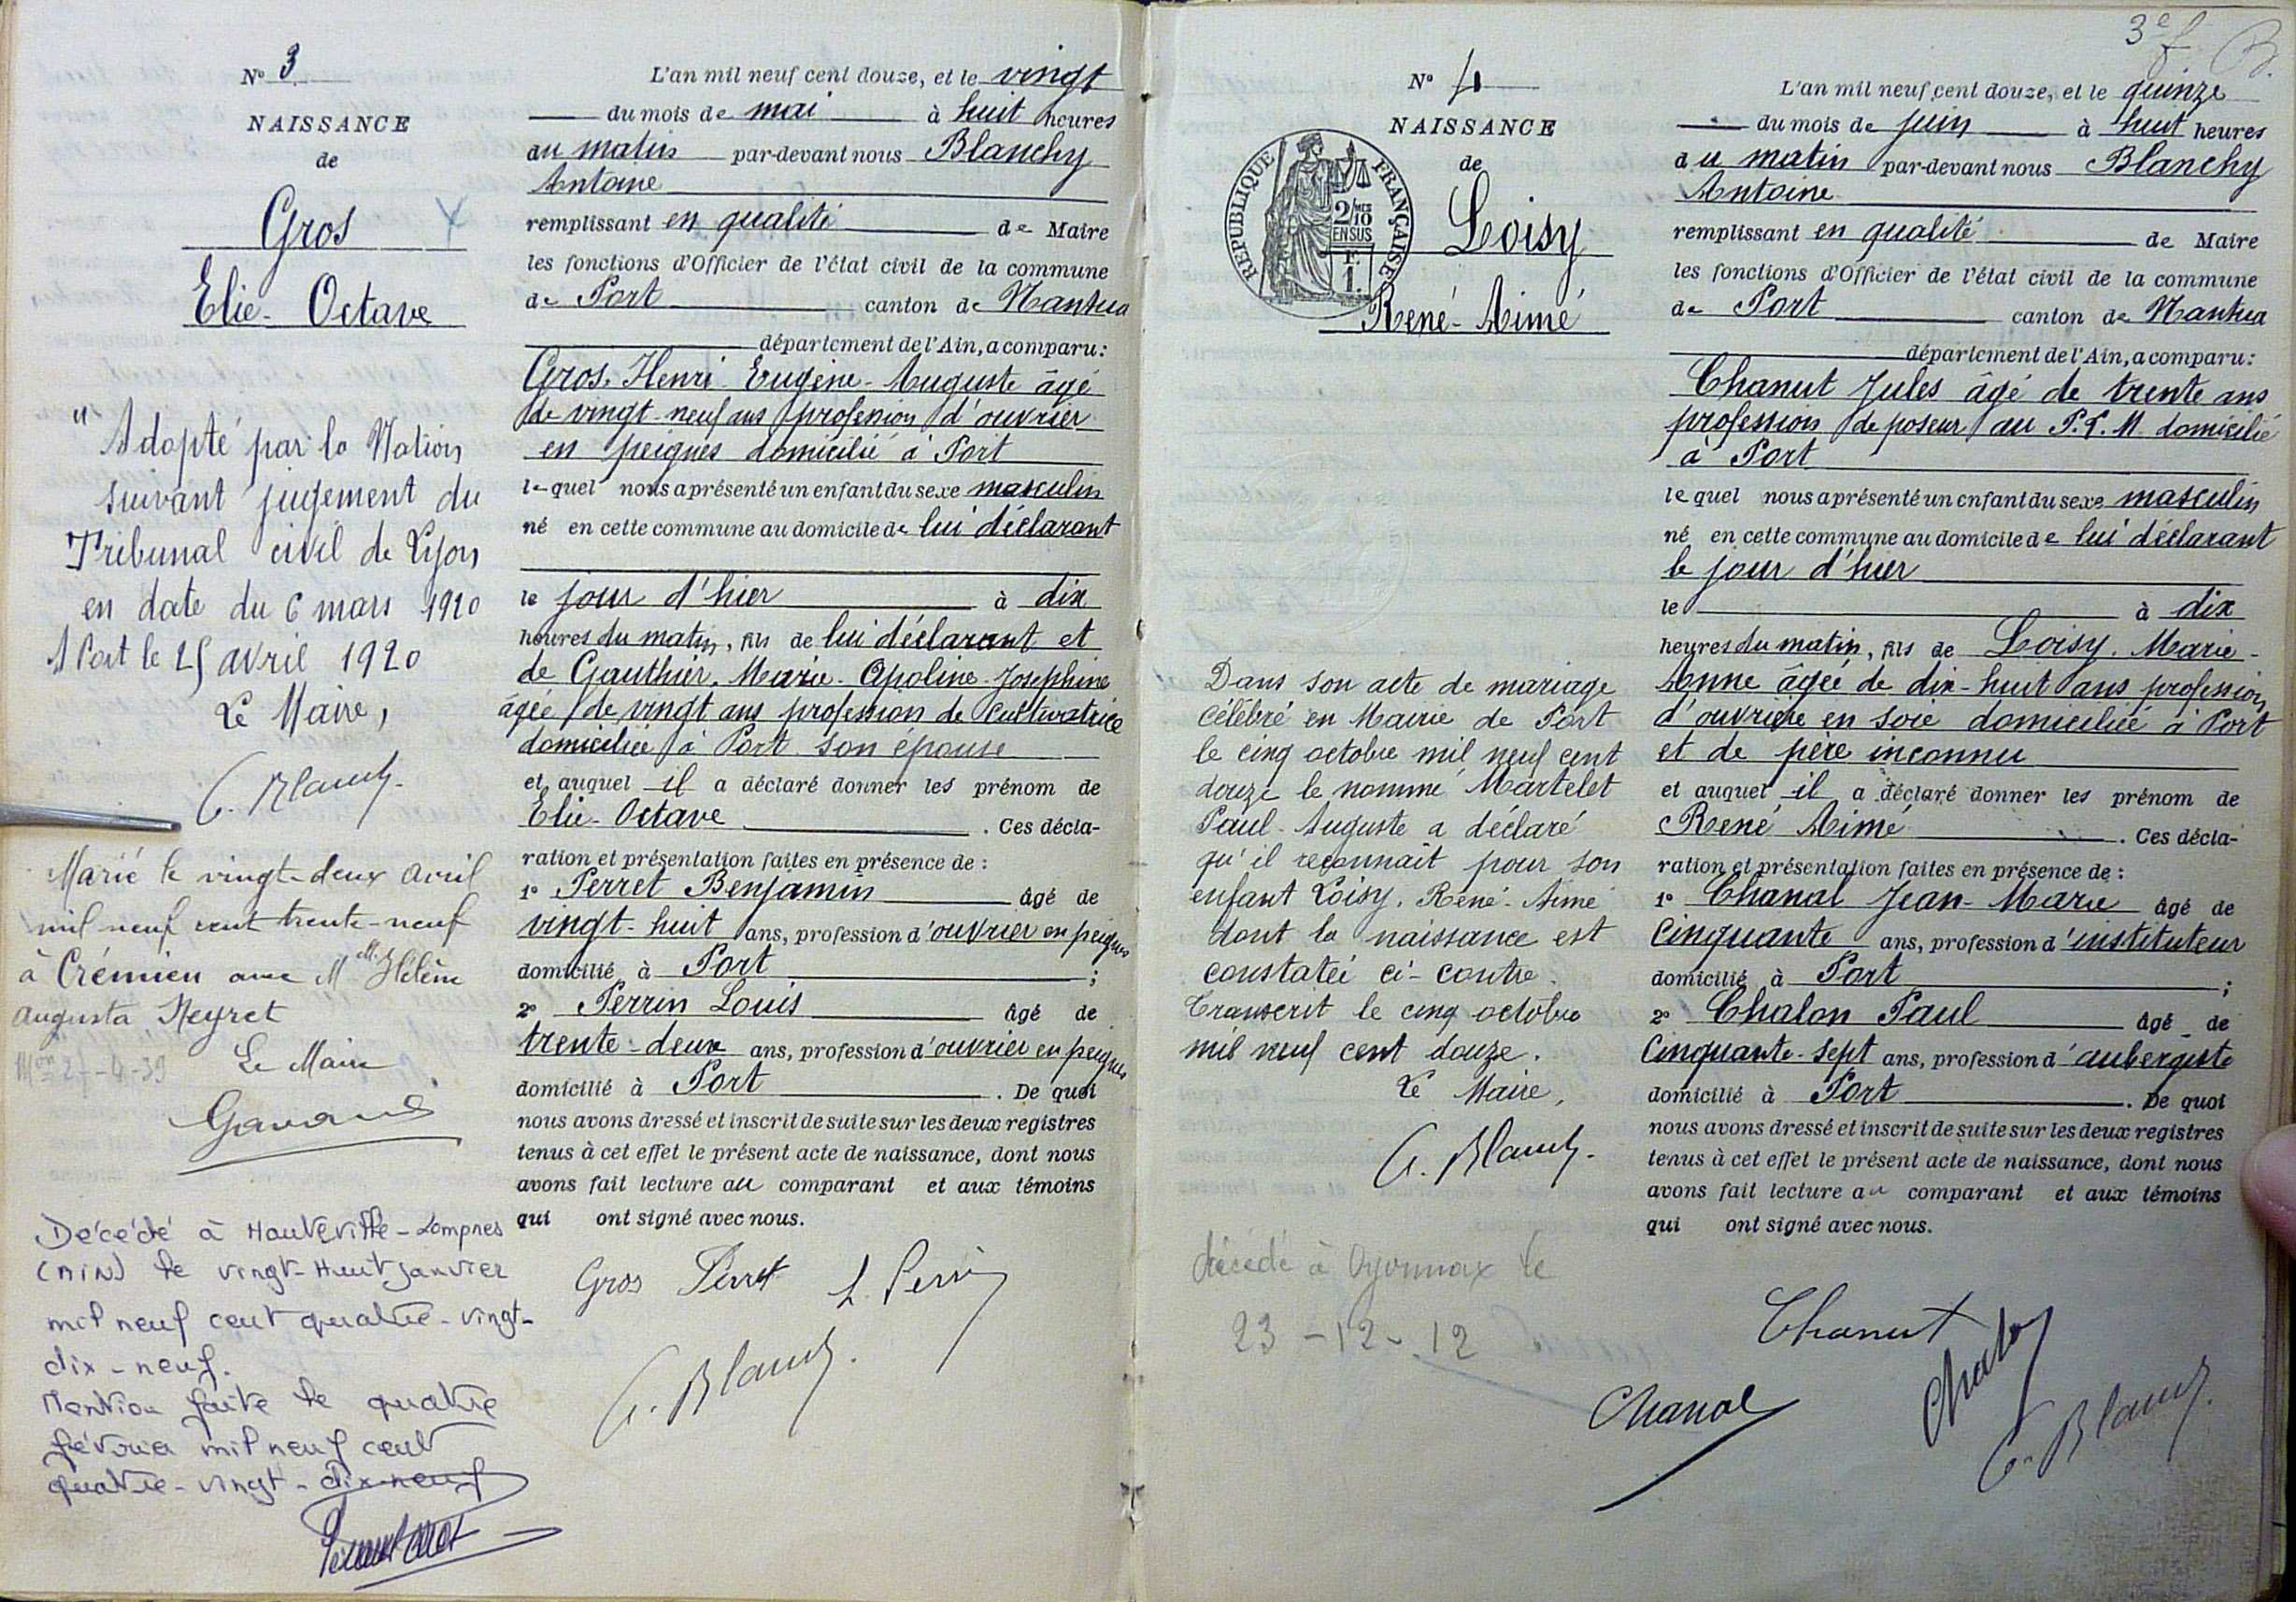 N° 3
NAISSANCE
de
Gros
Elie-Octave
"Adopté par la Nation
suivant jugement du
Tribunal civil de Lyon
en date du 6 mars 1920
A Port le 25 avril 1920
Le Maire,
Marié le vingt-deux avril
mil neuf cent trente-neuf
à Crémieu avec Hélène
Augusta Neyret
Le Maire
Décédé à Hauteville-Lompnes
(AIN) le vingt-Huit janvier
mil neuf cent quatre-vingt-
dix-neuf.
Mention faite le quatre
février mil neuf cent
quatre-vingt-dix-neuf
L'an mil neuf cent douze, et le vingt
du mois de mai à huit heures
du matin par-devant nous Blanchy
Antoine
remplissant en qualité de Maire
les fonctions d'Officier de l'état civil de la commune
de Port canton de Nantua
département de l'Ain, a comparu:
Gros, Henri-Eugène-Auguste âgé
de vingt-neuf ans profession d'ouvrier
en peignes domicilié à Port
lequel nous a présenté un enfant du sexe masculin
né en cette commune au domicile de lui déclarant
le jour d'hier à dix
heures du matin, fils de lui déclarant et
de Gauthier, Marie-Apoline-Joséphine
âgée de vingt ans profession de cultivatrice
domiciliée à Port son épouse
et auquel il a déclaré donner les prénom de
Elie-Octave. Ces décla-
ration et présentation faites en présence de:
1° Perret Benjamin âgé de
vingt-huit ans, profession d'ouvrier en peignes
domicilié à Port;
2° Perrin Louis âgé de
trente-deux ans, profession d'ouvrier en peignes
domicilié à Port. De quoi
nous avons dressé et inscrit de suite sur les deux registres
tenus à cet effet le présent acte de naissance, dont nous
avons fait lecture au comparant et aux témoins
qui ont signé avec nous.
Gros Perret L. Perrin
3e f
N° 4
NAISSANCE
de
Loisy
René-Aimé
REPUBLIQUE FRANÇAISE
2/10
EN SUS
F.
1.
Dans son acte de mariage
célébré en Mairie de Port
le cinq octobre mil neuf cent
douze le nommé Martelet
Paul-Auguste a déclaré
qu'il reconnait pour son
enfant Loisy, René-Aimé
dont la naissance est
constatée ci-contre.
Transcrit le cinq octobre
mil neuf cent douze.
Le Maire,
décédé à Oyonnax le
23-12-12
L'an mil neuf cent douze, et le quinze
du mois de juin à huit heures
du matin par-devant nous Blanchy
Antoine
remplissant en qualité de Maire
les fonctions d'Officier de l'état civil de la commune
de Port canton de Nantua
département de l'Ain, a comparu:
Chanut Jules âgé de trente ans
profession de poseur au P.L.M. domicilié
à Port
lequel nous a présenté un enfant du sexe masculin
né en cette commune au domicile de lui déclarant
le jour d'hier
le à dix
heures du matin, fils de Loisy, Marie-
Anne âgée de dix-huit ans profession
d'ouvrière en soie domiciliée à Port
et de père inconnu
et auquel il a déclaré donner les prénom de
René Aimé. Ces décla-
ration et présentation faites en présence de:
1° Chanal Jean-Marie âgé de
cinquante ans, profession d'instituteur
domicilié à Port;
2° Chalon Paul âgé de
cinquante-sept ans, profession d'aubergiste
domicilié à Port. De quoi
nous avons dressé et inscrit de suite sur les deux registres
tenus à cet effet le présent acte de naissance, dont nous
avons fait lecture au comparant et aux témoins
qui ont signé avec nous.
Chanut
Chanal